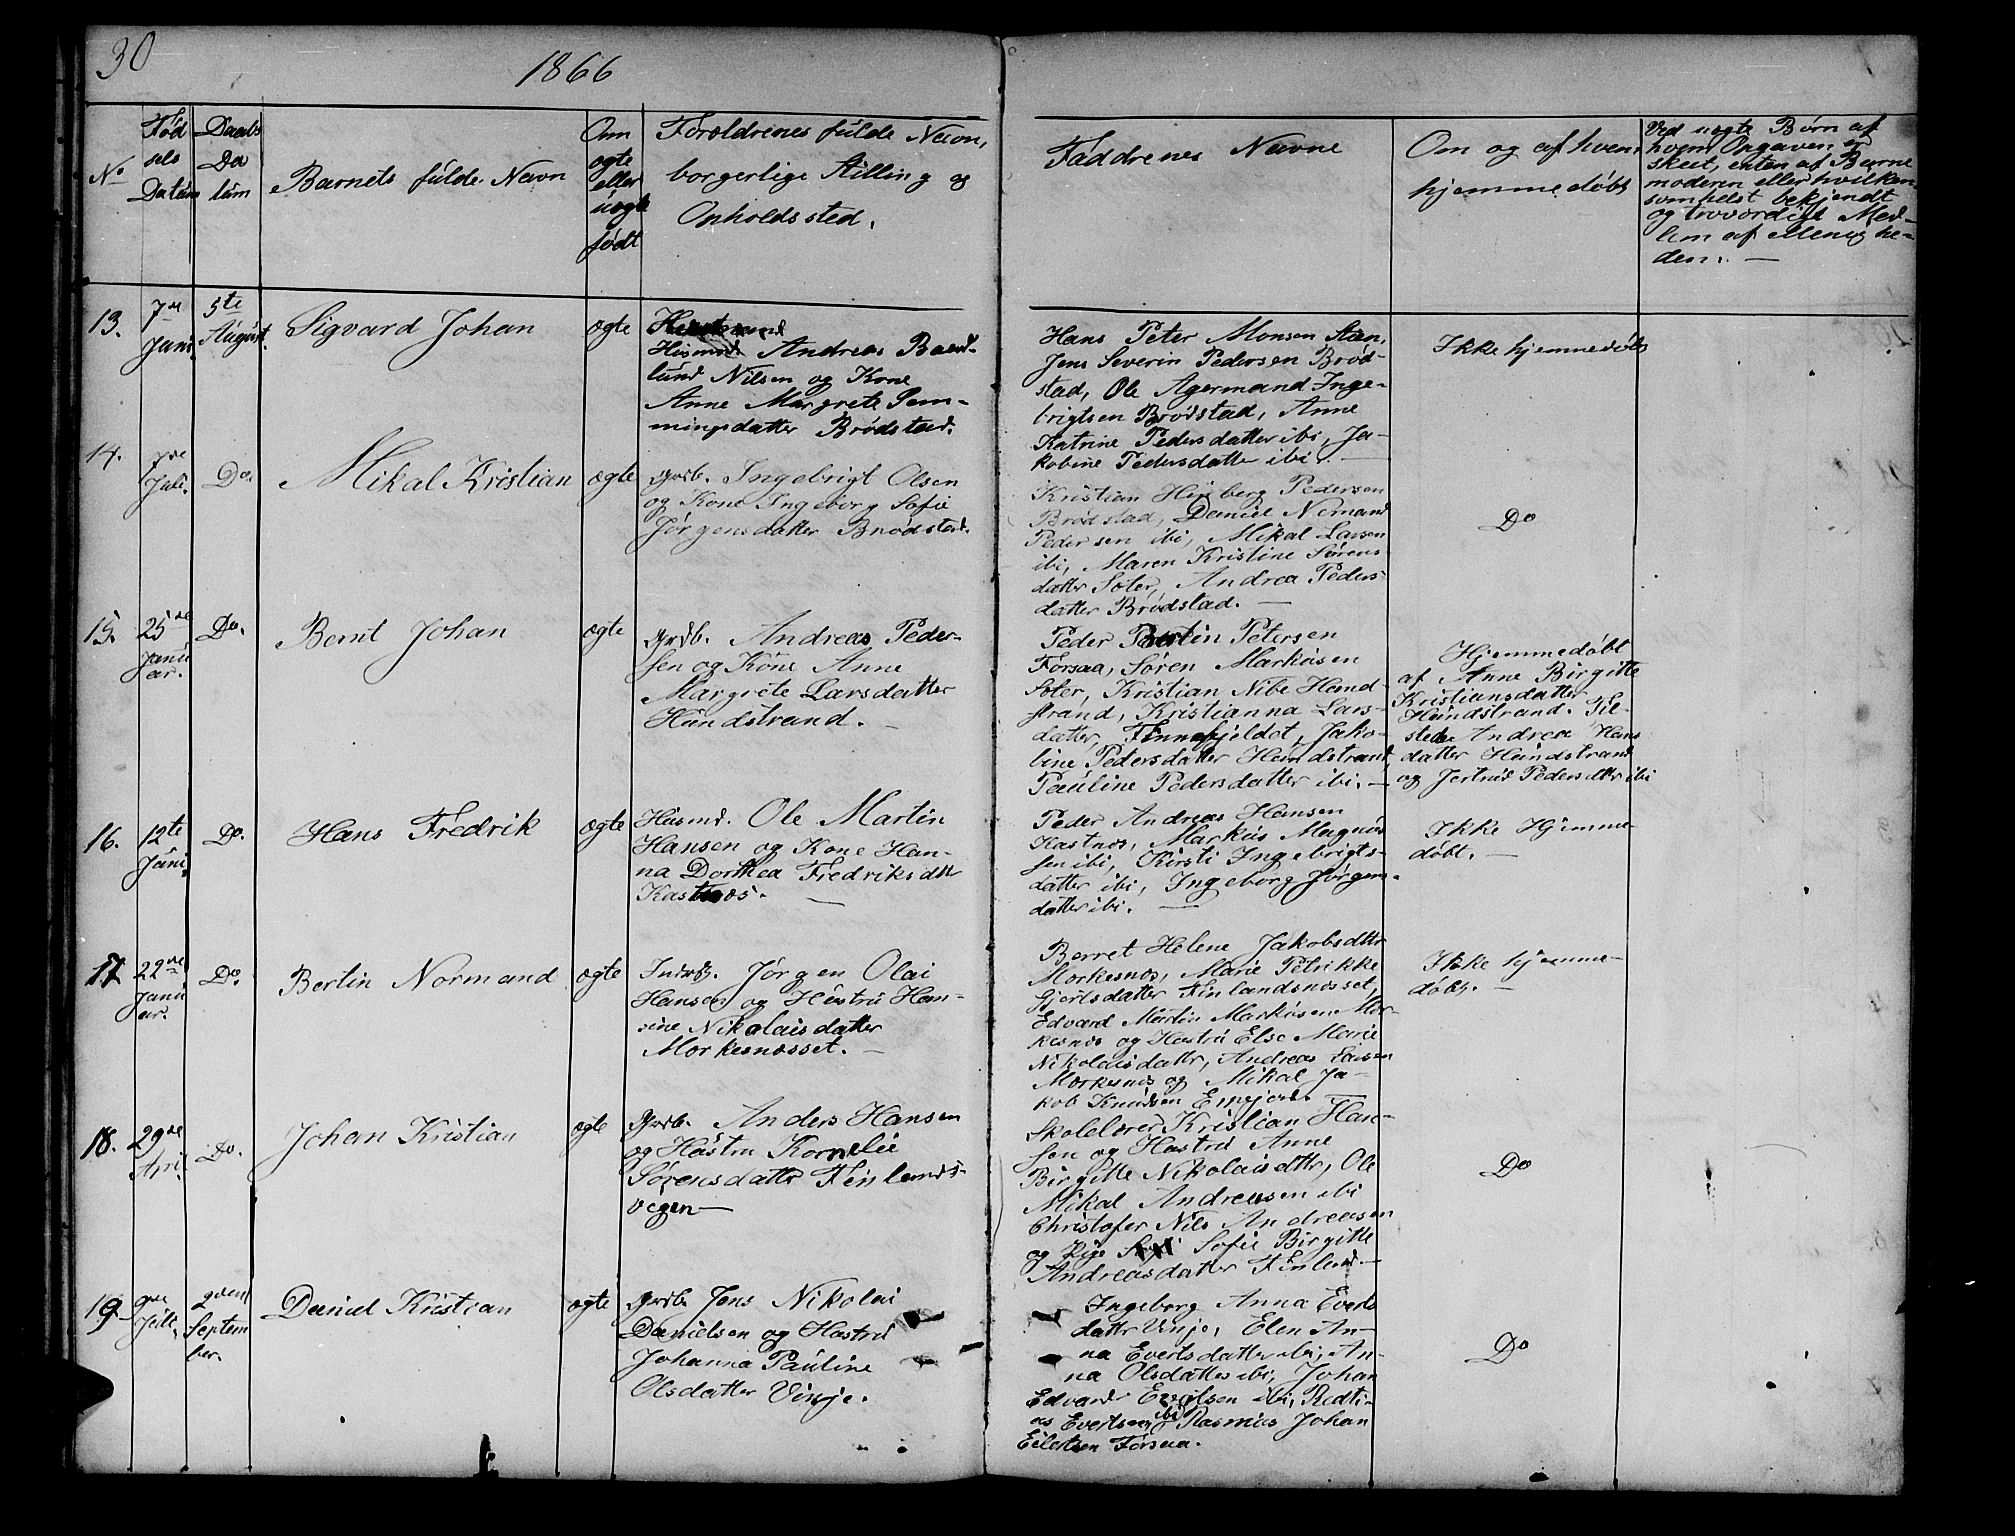 30
1866
No
Fød
sels
Datum
Daabs
Da
tum
Barnets fulde Navn
Om
ægte
eller
uægte
født
Forældrenes fulde Navn,
borgerlige Stilling og
Opholdssted.
Faddrenes Navne
Om og af hvem
hjemmedøbt
Ved uægte Børn af
hvem Opgaven er
skeet, enten af Barne
moderen eller hvilken
somhelst bekjendt
og troværdigt Med-
lem af Menighe-
den. —
13.
7de
Juni
5te
August.
Sigvard Johan
ægte
Husmd. Andreas
lund Nilsen og Kone
Anne Margrete Sem-
mingsdatter Brødstad.
Hans Peter Monsen
Jens Severin Pedersen Brød-
stad, Ole Agermand Inge-
brigtsen Brødstad, Anne
Katrine Pedersdatter ibi, Ja-
kobine Pedersdatter ibi. —
Ikke hjemmedøbt
14.
7de
Juli.
Do.
Mikal Kristian
ægte
Grdb. Ingebrigt Olsen
og Kone Ingeborg Sofie
Jørgensdatter Brødstad.
Kristian Hejberg Pedersen
Brødstad, Daniel Normand
Pedersen ibi, Mikal Larsen
ibi, Maren Kristine Sørens
datter Soter, Andrea Peders-
datter Brødstad. —
Do
15.
25de
Janu
ar.
Do.
Bernt Johan
ægte
Grdb. Andreas Peder-
sen og Kone Anne
Margrete Larsdatter
Hundstrand. —
Peder Bertin Petersen
Forsaa, Søren Markusen
Soter, Kristian Nibe Hund-
strand, Kristianna Lars-
datter, Finnefjeldet, Jako-
bine Pedersdatter Hundstrand
Pauline Pedersdatter ibi. —
Hjemmedøbt
af Anne Birgitte
Kristiansdatter
Hundstrand. Til-
stede Andrea Hans
datter Hundstrand
og Jertrud Pedersdttr ibi
16.
12te
Juni
Do.
Hans Fredrik
ægte
Husmd. Ole Martin
Hansen og Kone Han-
na Dorthea Fredriksdttr
Kastnæs. —
Peder Andreas Hansen
Kastnæs, Markus Magnus
sen ibi, Kirsti Ingebrigts-
datter ibi, Ingeborg Jørgens-
datter ibi. —
Ikke Hjemme-
døbt. —
17.
22de
Janu
ar.
Do.
Bertin Normand
ægte
Indrst. Jørgen Olai
Hansen og Hustru Han-
sine Nikolaisdatter
Morkesnæsset. —
Berret Helene Jakobsdttr
Morkesnæs, Marie Petrikke
Gjertsdatter Finlandsnæsset,
Edvard Martin Markusen Mor-
kesnæs og Hustru Else Marie
Nikolaisdattr, Andreas Larsen
Morkesnæs og Mikal Ja-
kob Knudsen
Ikke hjemme-
døbt. —
18.
29de
Apri.
Do.
Johan Kristian
ægte
Grdb. Anders Hansen
og Hustru Kornelie
Sørensdattr Finlands-
vegen —
Skolelærer Kristian Han-
sen og Hustru Anne
Birgitte Nikolaisdttr, Ole
Mikal Andreasen ibi
Christofer Nils Andreasen
og Pige Sofie Birgitte
Andreasdatter Finland. —
Do
19
9de
Juli.
2den
Septem
ber.
Daniel Kristian
ægte
Grdb. Jens Nikolai
Danielsen og Hustru
Johanna Pauline
Olsdatter Vinje.
Ingeborg Anna Everts
dattr Vinje, Elen An-
na Evertsdatter ibi, An-
na Olsdatter ibi, Johan
Edvard ibi,
as Evertsen ibi, Rasmus Johan
Eilertsen Forsaa.
Do